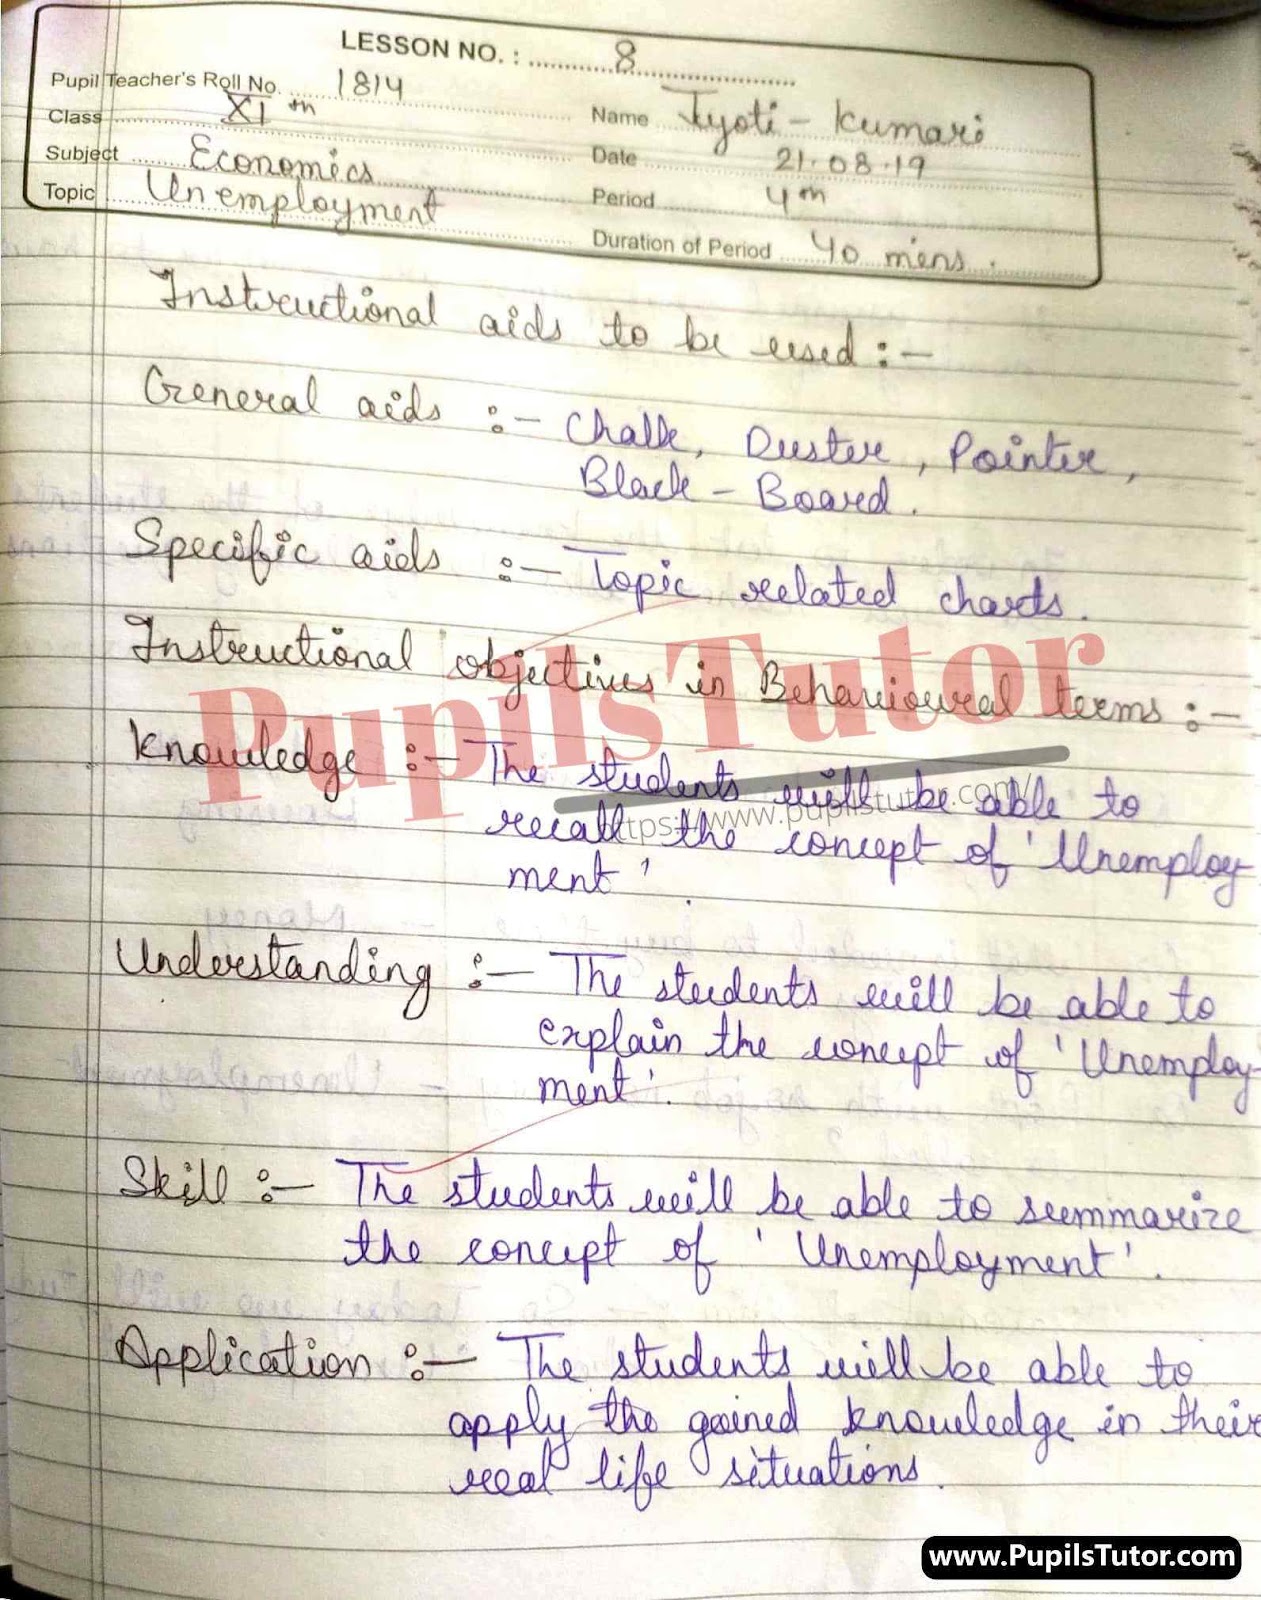 LESSON NO. : 8
Pupil Teacher's Roll No. 1814
Class XIth
Name Jyoti - Kumari
Subject Economics
Date 21.08.19
Topic Unemployment
Period 4th
Duration of Period 40 mins.
Instructional aids to be used :-
General aids :- Chalk, Duster, Pointer,
Black - Board.
Specific aids :- Topic related charts.
Instructional objectives in Behavioural terms :-
PupilsTutor
Knowledge :- The students will be able to
https://www.pupilstutor.com/
recall the concept of 'Unemploy
ment'.
Understanding :- The students will be able to
explain the concept of 'Unemploy-
ment'.
Skill :- The students will be able to summarize
the concept of 'Unemployment'.
Application :- The students will be able to
apply the gained knowledge in their
real life situations.
www.PupilsTutor.com